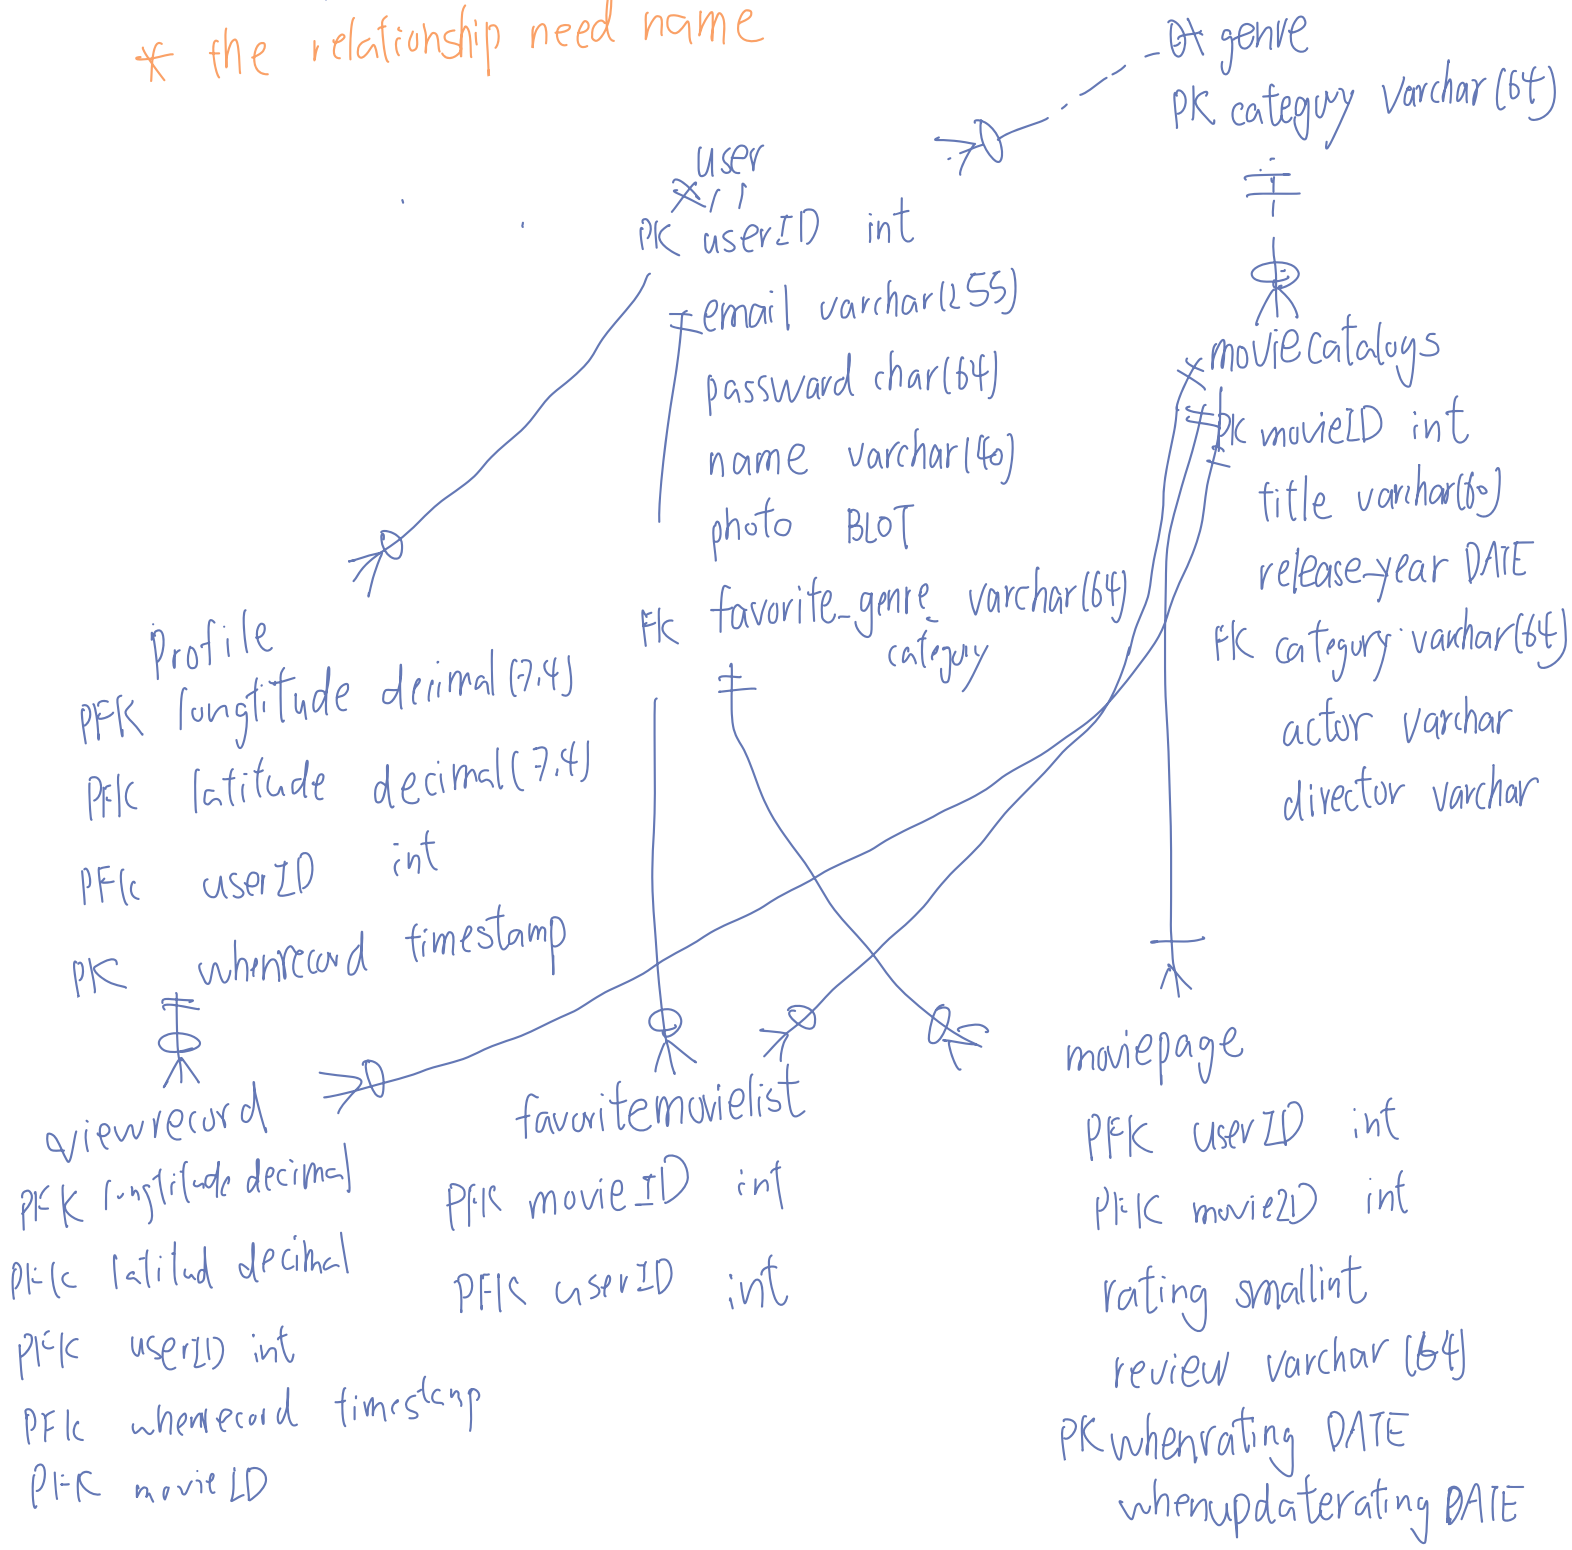 * the relationship need name
genre
PK category varchar(64)
user
PK userID int
email varchar(255)
password char(64)
name varchar(40)
photo BLOT
FK favorite_genre_ varchar(64)
category
moviecatalogs
PK movieID int
title varchar(60)
release_year DATE
FK category varchar(64)
actor varchar
director varchar
Profile
PFK longtitude decimal(7,4)
PFK latitude decimal(7,4)
PFK userID int
PK whenrecord timestamp
viewrecord
PFK longtitude decimal
PFK latitud decimal
PFK userID int
PFK whenrecord timestamp
PFK movieID
favoritemovielist
PFK movieID int
PFK userID int
moviepage
PFK userID int
PFK movieID int
rating smallint
review varchar(64)
PK whenrating DATE
whenupdaterating DATE